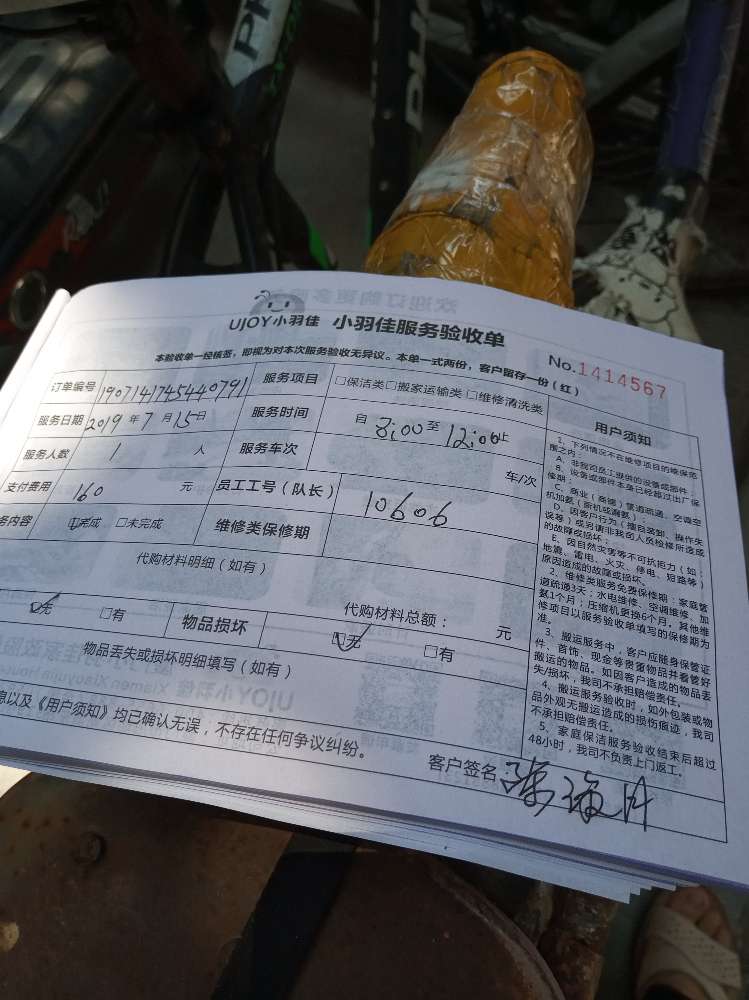 UJOY小羽佳 小羽佳服务验收单
No.1414567
本验收单一经核签，即视为对本次服务验收无异议。本单一式两份，客户留存一份（红）
订单编号 1907141745440791 服务项目 □保洁类□搬家运输类□维修清洗类
服务日期 2019年7月15日 服务时间 自8:00至12:00止
服务人数 1 人 服务车次 车/次
支付费用 160 元 员工工号（队长） 10606
务内容 ☑完成 □未完成 维修类保修期
代购材料明细（如有）
代购材料总额： 元
☑无 □有 物品损坏 ☑无 □有
物品丢失或损坏明细填写（如有）
息以及《用户须知》均已确认无误，不存在任何争议纠纷。
客户签名：
用户须知
1、下列情况不在维修项目的维保范
围之内：
A、非我司员工提供的设备或部件；
B、设备或部件本身已经超过出厂保
修期；
C、商业（商铺）管道疏通、空调空
机加氨（新机或漏氨）
D、因客户行为（擅自装卸、操作失
误等）或另请非我司人员检修所造成
的故障或损坏；
E、因自然灾害等不可抗拒力（如：
地震、雷电、火灾、停电、短路等）
原因造成的故障或损坏。
2、维修类服务免费保修期：家庭管
道疏通3天；水电维修、空调维修、加
氨1个月；压缩机更换6个月。其他维
修项目以服务验收单填写的保修期为
准。
3、搬运服务中，客户应随身保管证
件、首饰、现金等贵重物品并看管好
搬运的物品。如因客户造成的物品丢
失/损坏，我司不承担赔偿责任。
4、搬运服务验收时，如外包装或物
品外观无搬运造成的损伤痕迹，我司
不承担赔偿责任。
5、家庭保洁服务验收结束后超过
48小时，我司不负责上门返工。